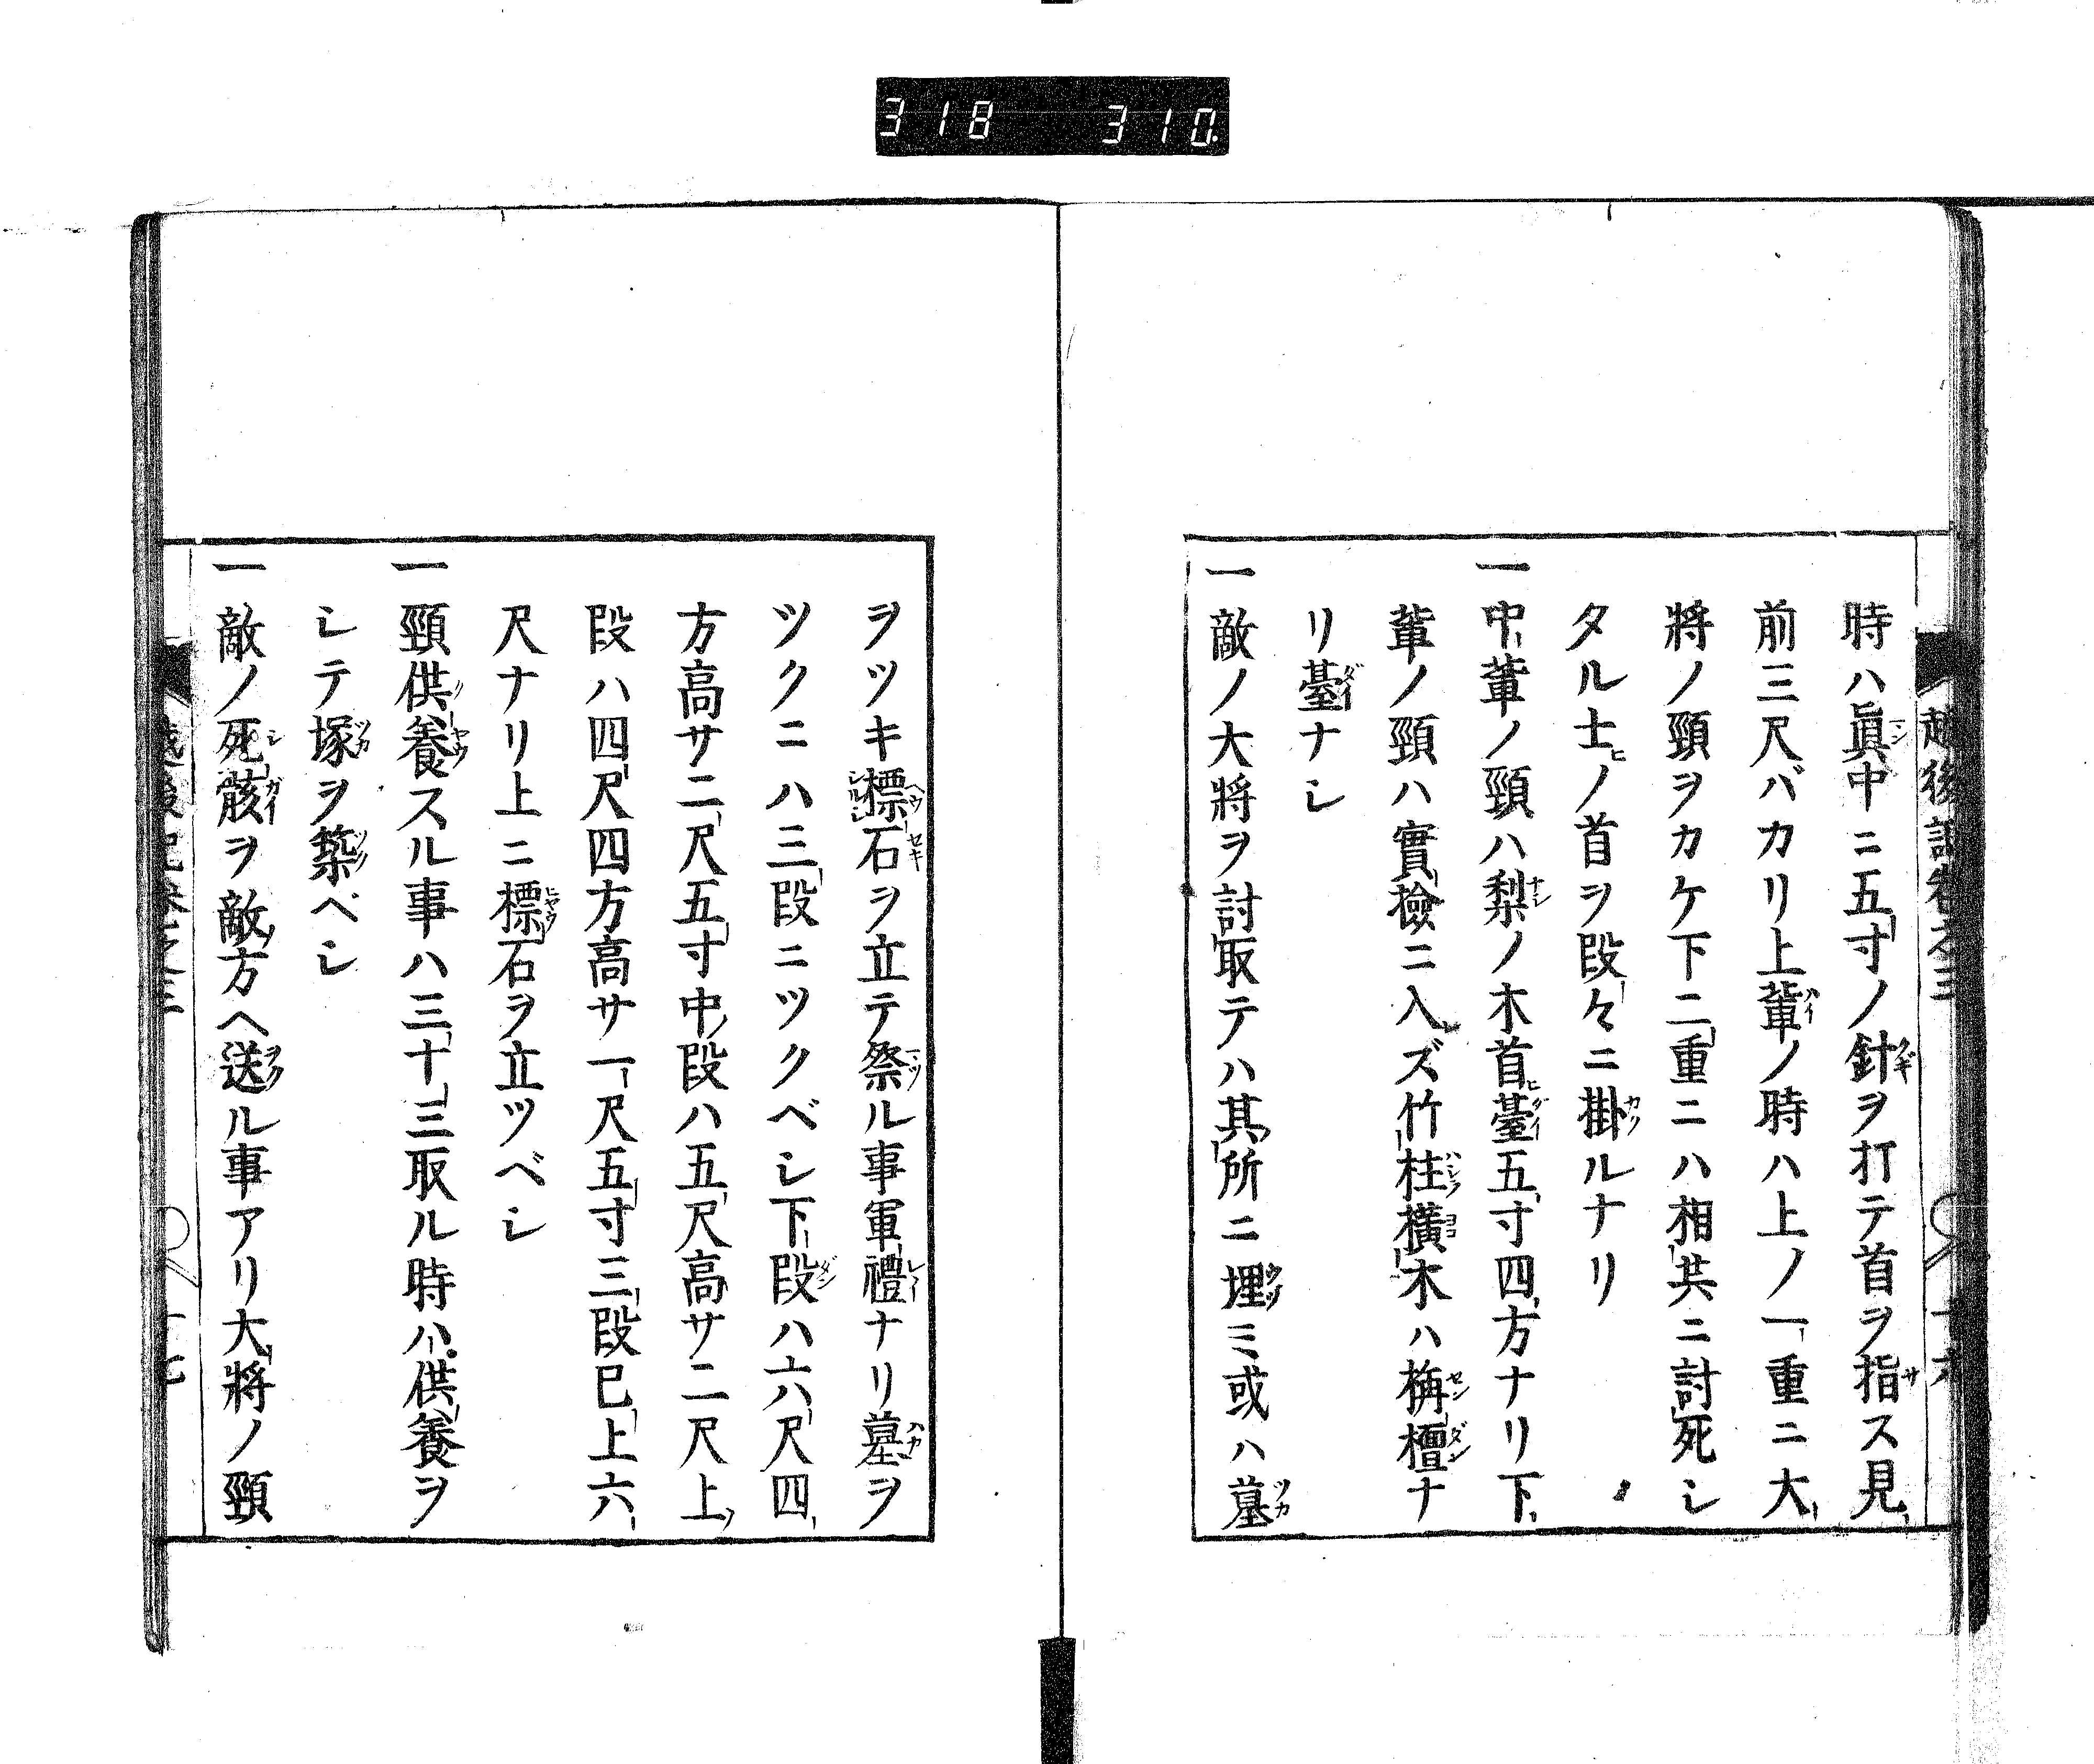 318 310
時ハ眞中ニ五寸ノ針ヲ打テ首ヲ指ス見
前三尺バカリ上輩ノ時ハ上ノ一重ニ大
將ノ頸ヲカケ下二重ニハ相共ニ討死シ
タル士ノ首ヲ段々ニ掛ルナリ
一中輩ノ頸ハ梨ノ木首臺五寸四方ナリ下
輩ノ頸ハ實檢ニ入ズ竹柱橫木ハ栴檀ナ
リ臺ナシ
一敵ノ大將ヲ討取テハ其所ニ埋ミ或ハ墓
ヲツキ標石ヲ立テ祭ル事軍禮ナリ墓ヲ
ツクニハ三段ニツクベシ下段ハ六尺四
方高サ二尺五寸中段ハ五尺高サ二尺上
段ハ四尺四方高サ一尺五寸三段巳上六
尺ナリ上ニ標石ヲ立ツベシ
一頸供養スル事ハ三十三取ル時ハ供養ヲ
シテ塚ヲ築ベシ
一敵ノ死骸ヲ敵方ヘ送ル事アリ大將ノ頸